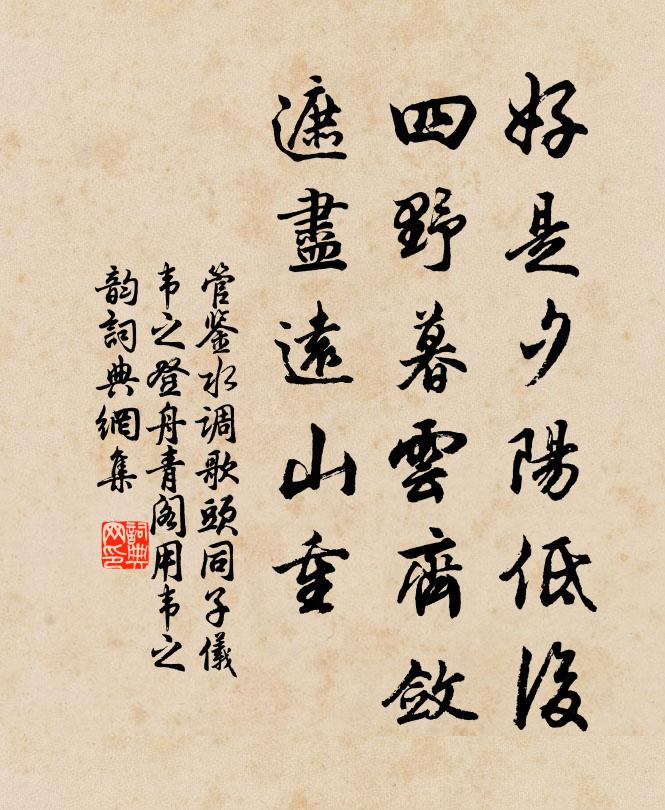 好是夕陽低後
四野暮雲齊斂
遮盡遠山重
管鉴水调歌頭同子儀
韦之登舟青阁用韦之
韵詞典網集
詞典
网印